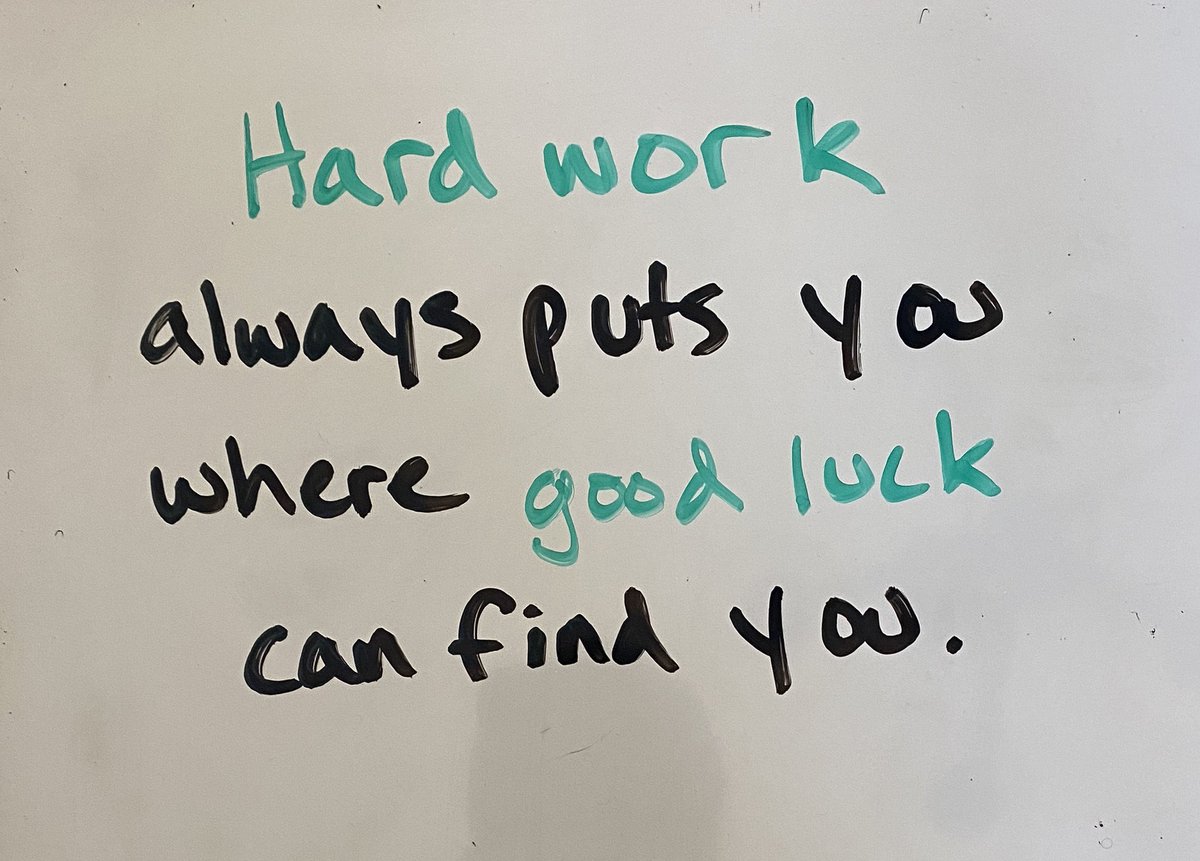 Hard work
always puts you
where good luck
can find you.